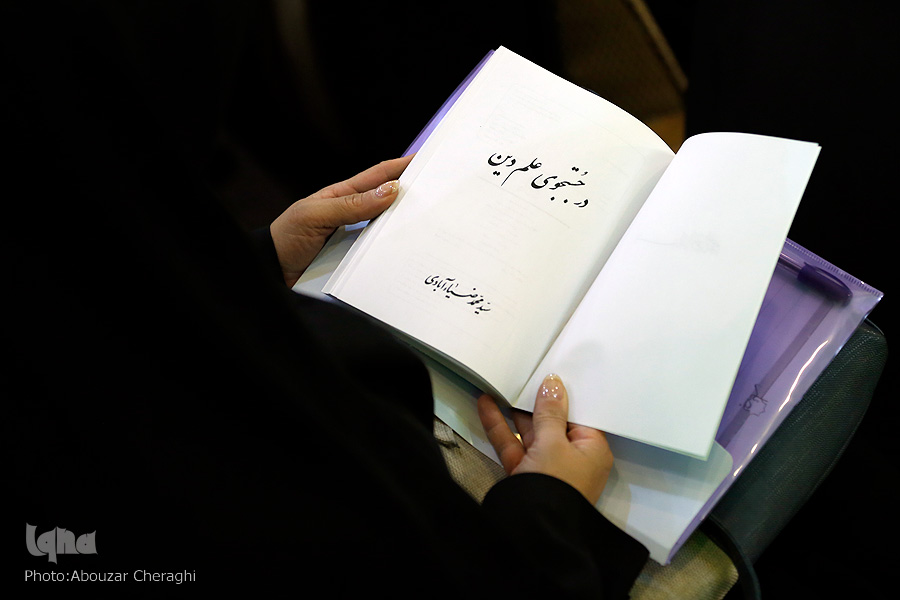 در جُستجوی علم دین
سیّد محمّد ضیاءآبادی
Iqna
Photo:Abouzar Cheraghi